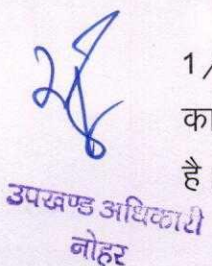 1/
का
है
उपखण्ड अधिकारी
नोहर